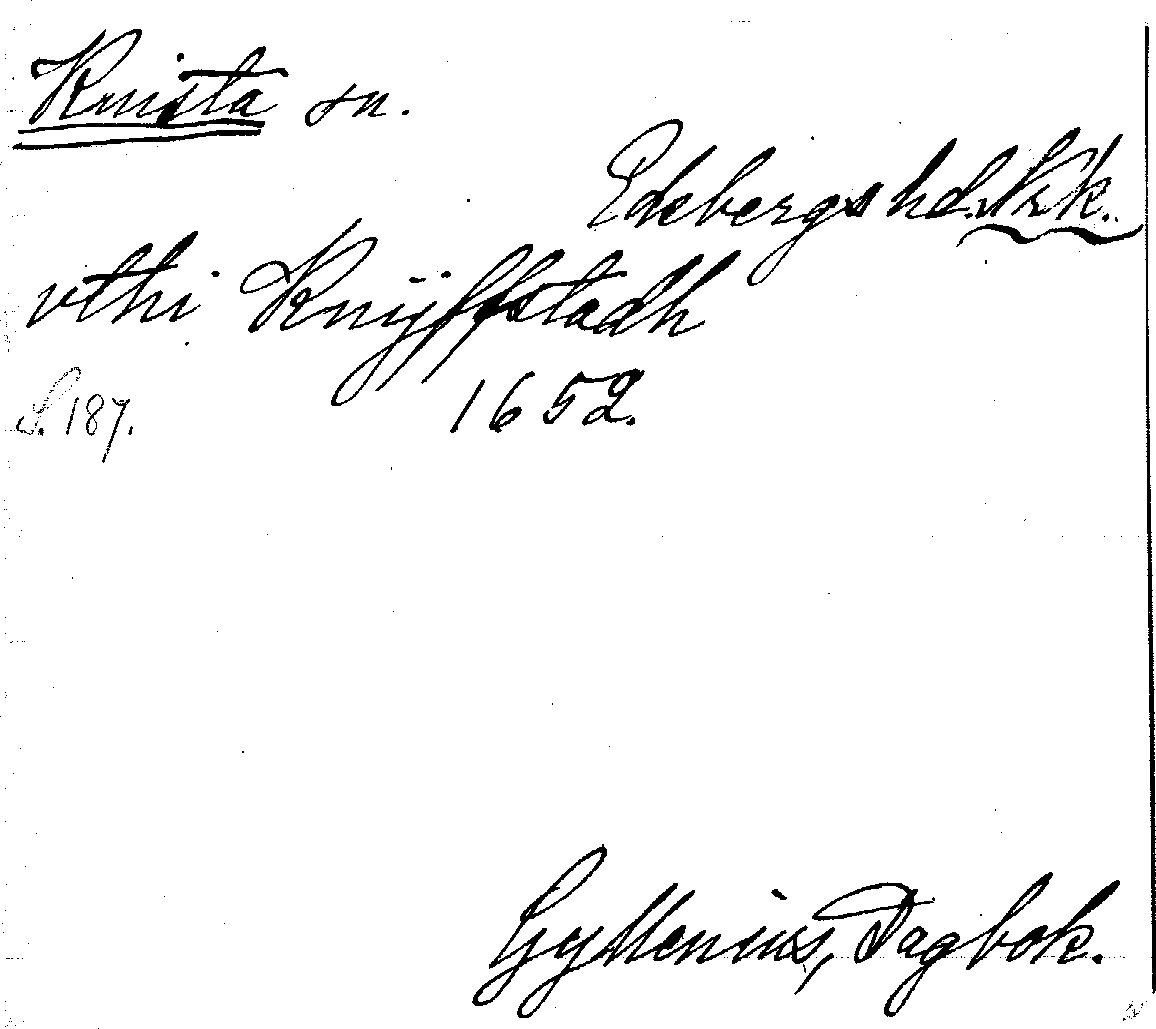 Knista sn.
Edsbergs hd. Nrk.
vthi Knijffstadh
S. 187. 1652.
Gyllenius, Dagbok.